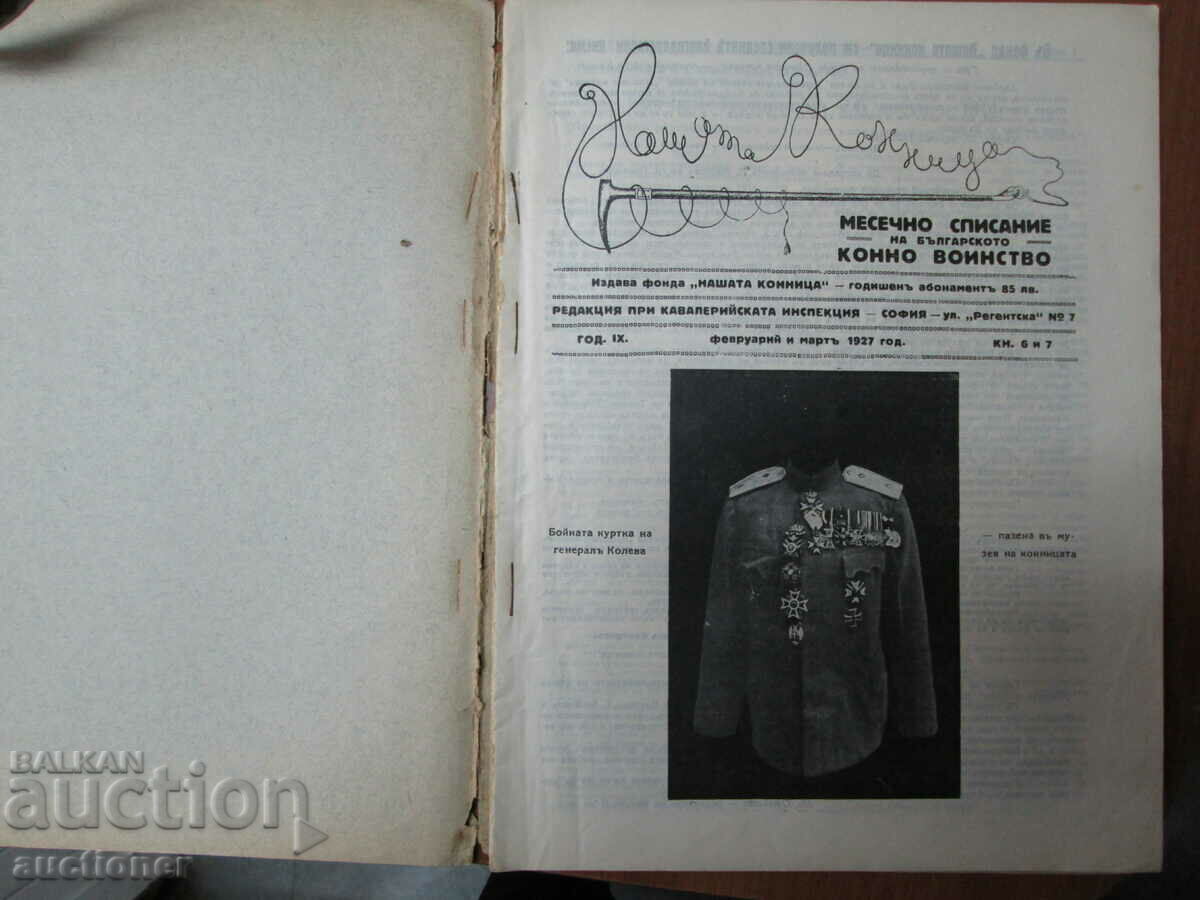 Нашата Конница
МЕСЕЧНО СПИСАНИЕ
НА БЪЛГАРСКОТО
КОННО ВОИНСТВО
Издава фонда „НАШАТА КОННИЦА“ — годишенъ абонаментъ 85 лв.
РЕДАКЦИЯ ПРИ КАВАЛЕРИЙСКАТА ИНСПЕКЦИЯ — СОФИЯ — ул. „Регентска“ № 7
ГОД. IX. февруарий и мартъ 1927 год. КН. 6 и 7
Бойната куртка на
генералъ Колева
— пазена въ му-
зея на конницата
BALKAN
auction
auctioner